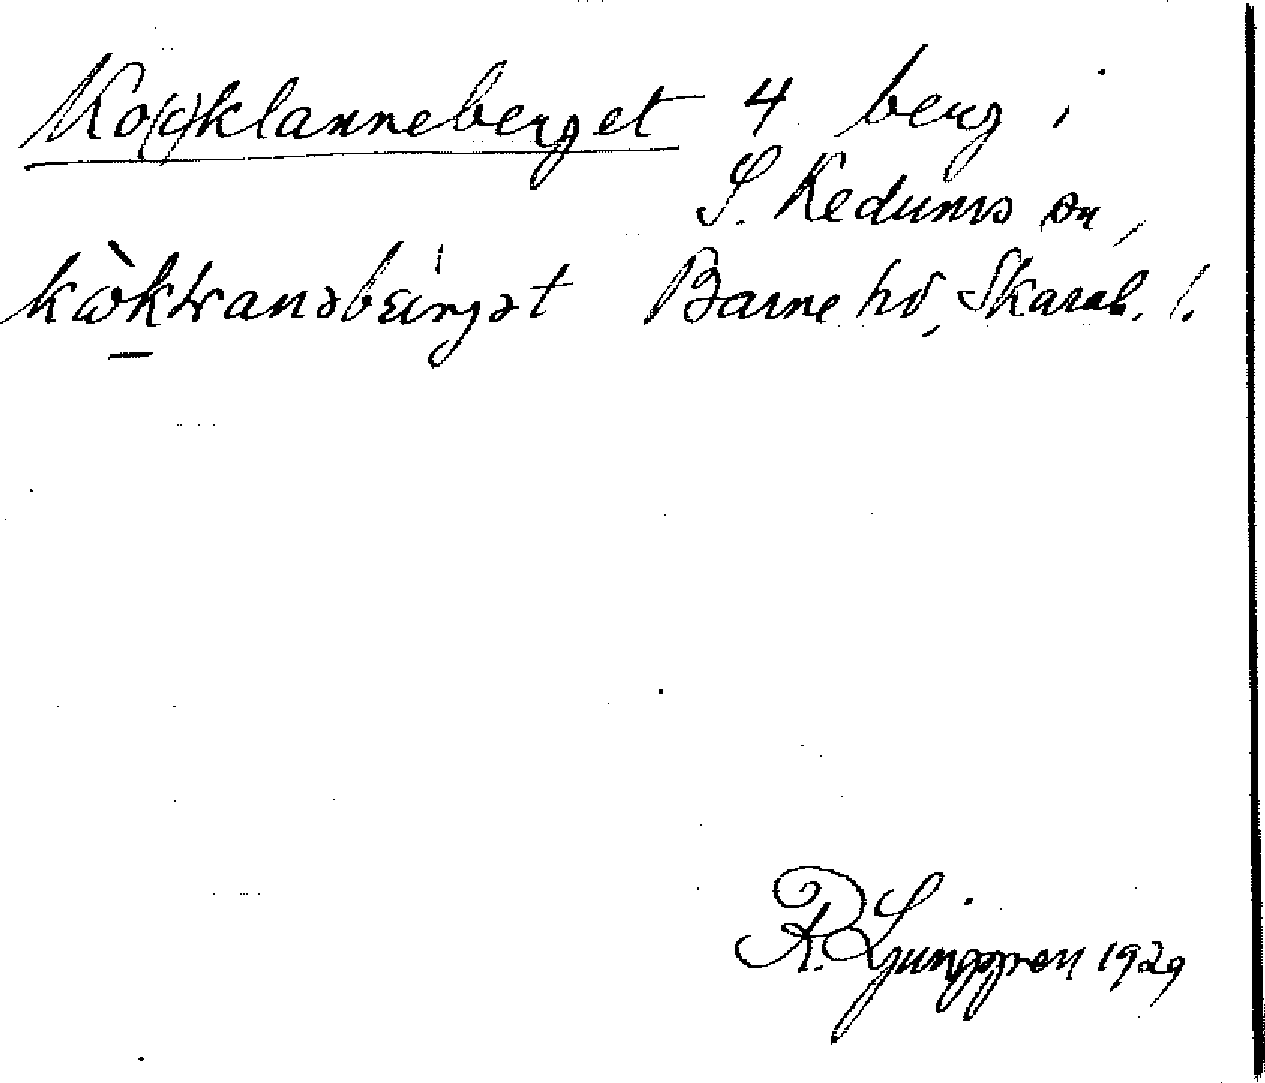 Ko(c)klanneberget 4 berg i
S. Kedums sn,
Barne hd, Skarab. l.
R. Ljunggren 1929